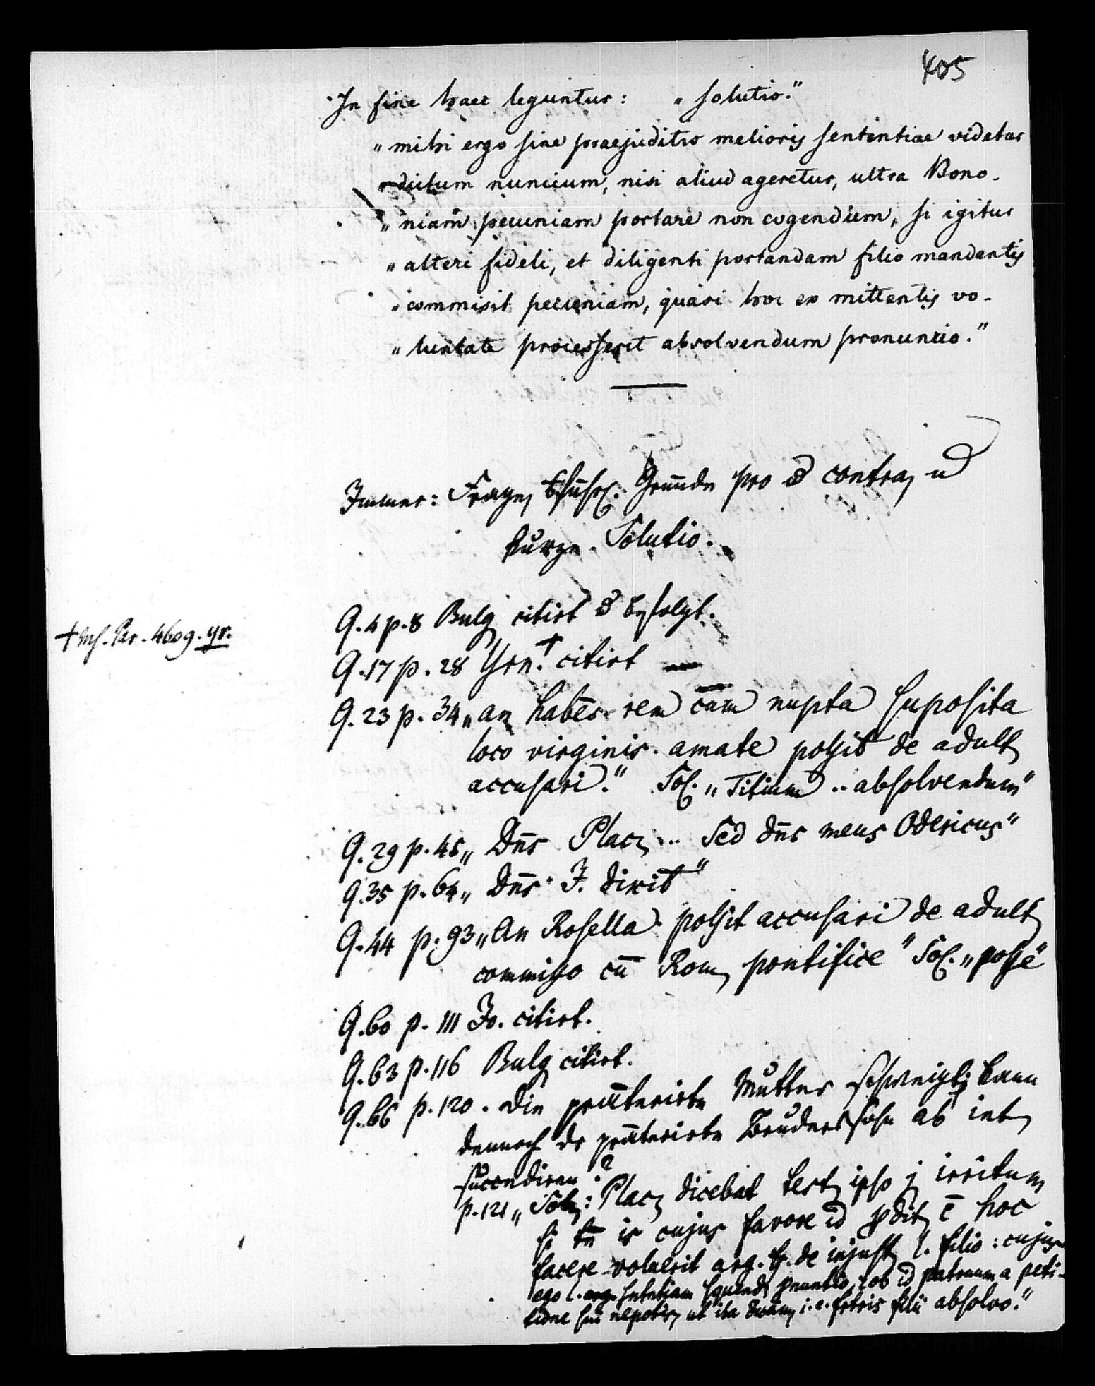 405
In fine haec leguntur: „Solutio.“
„mihi ergo sine praejuditio melioris sententiae videtur
„dictum nuncium, nisi aliud ageretur, ultra Bono-
„niam pecuniam portare non cogendum, si igitur
„alteri fideli, et diligenti portandam filio mandantis
„commisit pecuniam, quasi hoc ex mittentis vo-
„luntate processerit absolvendum pronuncio.“
Immer: Frage, Gründe pro et contra, u
kurze Solutio.
Q. 4 p. 8 Bulg citirt befolgt.
+ Ms. Par. 4609. yr.
Q. 17 p. 28 Yrn.+ citirt —
Q. 23 p. 34 „an habēs rem cum nupta suposita
loco virginis amate possit de adult
accusari.“ Sol. „Titium .. absolvendum“
Q. 29 p. 45 „Dn̄s Plac ... sed dn̄s meus Odericus“
Q. 35 p. 64 „Dn̄s J. dixit“
Q. 44 p. 93 „An Rosella possit accusari de adult
commisso cū Rom pontifice“ Sol. „posse“
Q. 60 p. 111 Jo. citirt.
Q. 63 p. 116 Bulg citirt.
Q. 66 p. 120. Die präterirte Mutter schweigt; kann
dennoch der präterirte Bruderssohn ab int
succediren?
p. 121 „Sol: Plac dicebat test ipso j irritum
si tn̄ is cujus favore id pdit c̄ hoc
facere voluerit arg. ff. de injust l. filio: cujus
ego sententiam pnuntio, ob id patruum a peti-
tione sui nepotis, ut ita dicam i. e. fratris filii absolvo.“